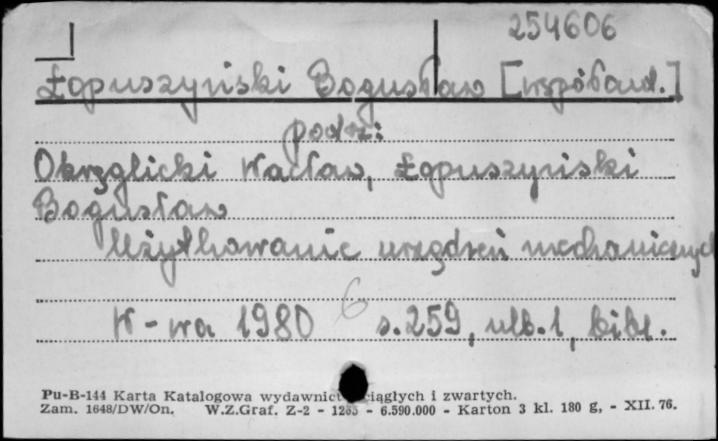 254606
Łopuszyński Bogusław [współaut.]
podtz:
Okręglicki Wacław, Łopuszyński
Bogusław
Użytkowanie urządzeń mechanicznych
6
W-wa 1980 s.259, nlb.1, bibl.
Pu-B-144 Karta Katalogowa wydawnict ciągłych i zwartych.
Zam. 1648/DW/On. W.Z.Graf. Z-2 - 1265 - 6.590.000 - Karton 3 kl. 180 g, - XII. 76.